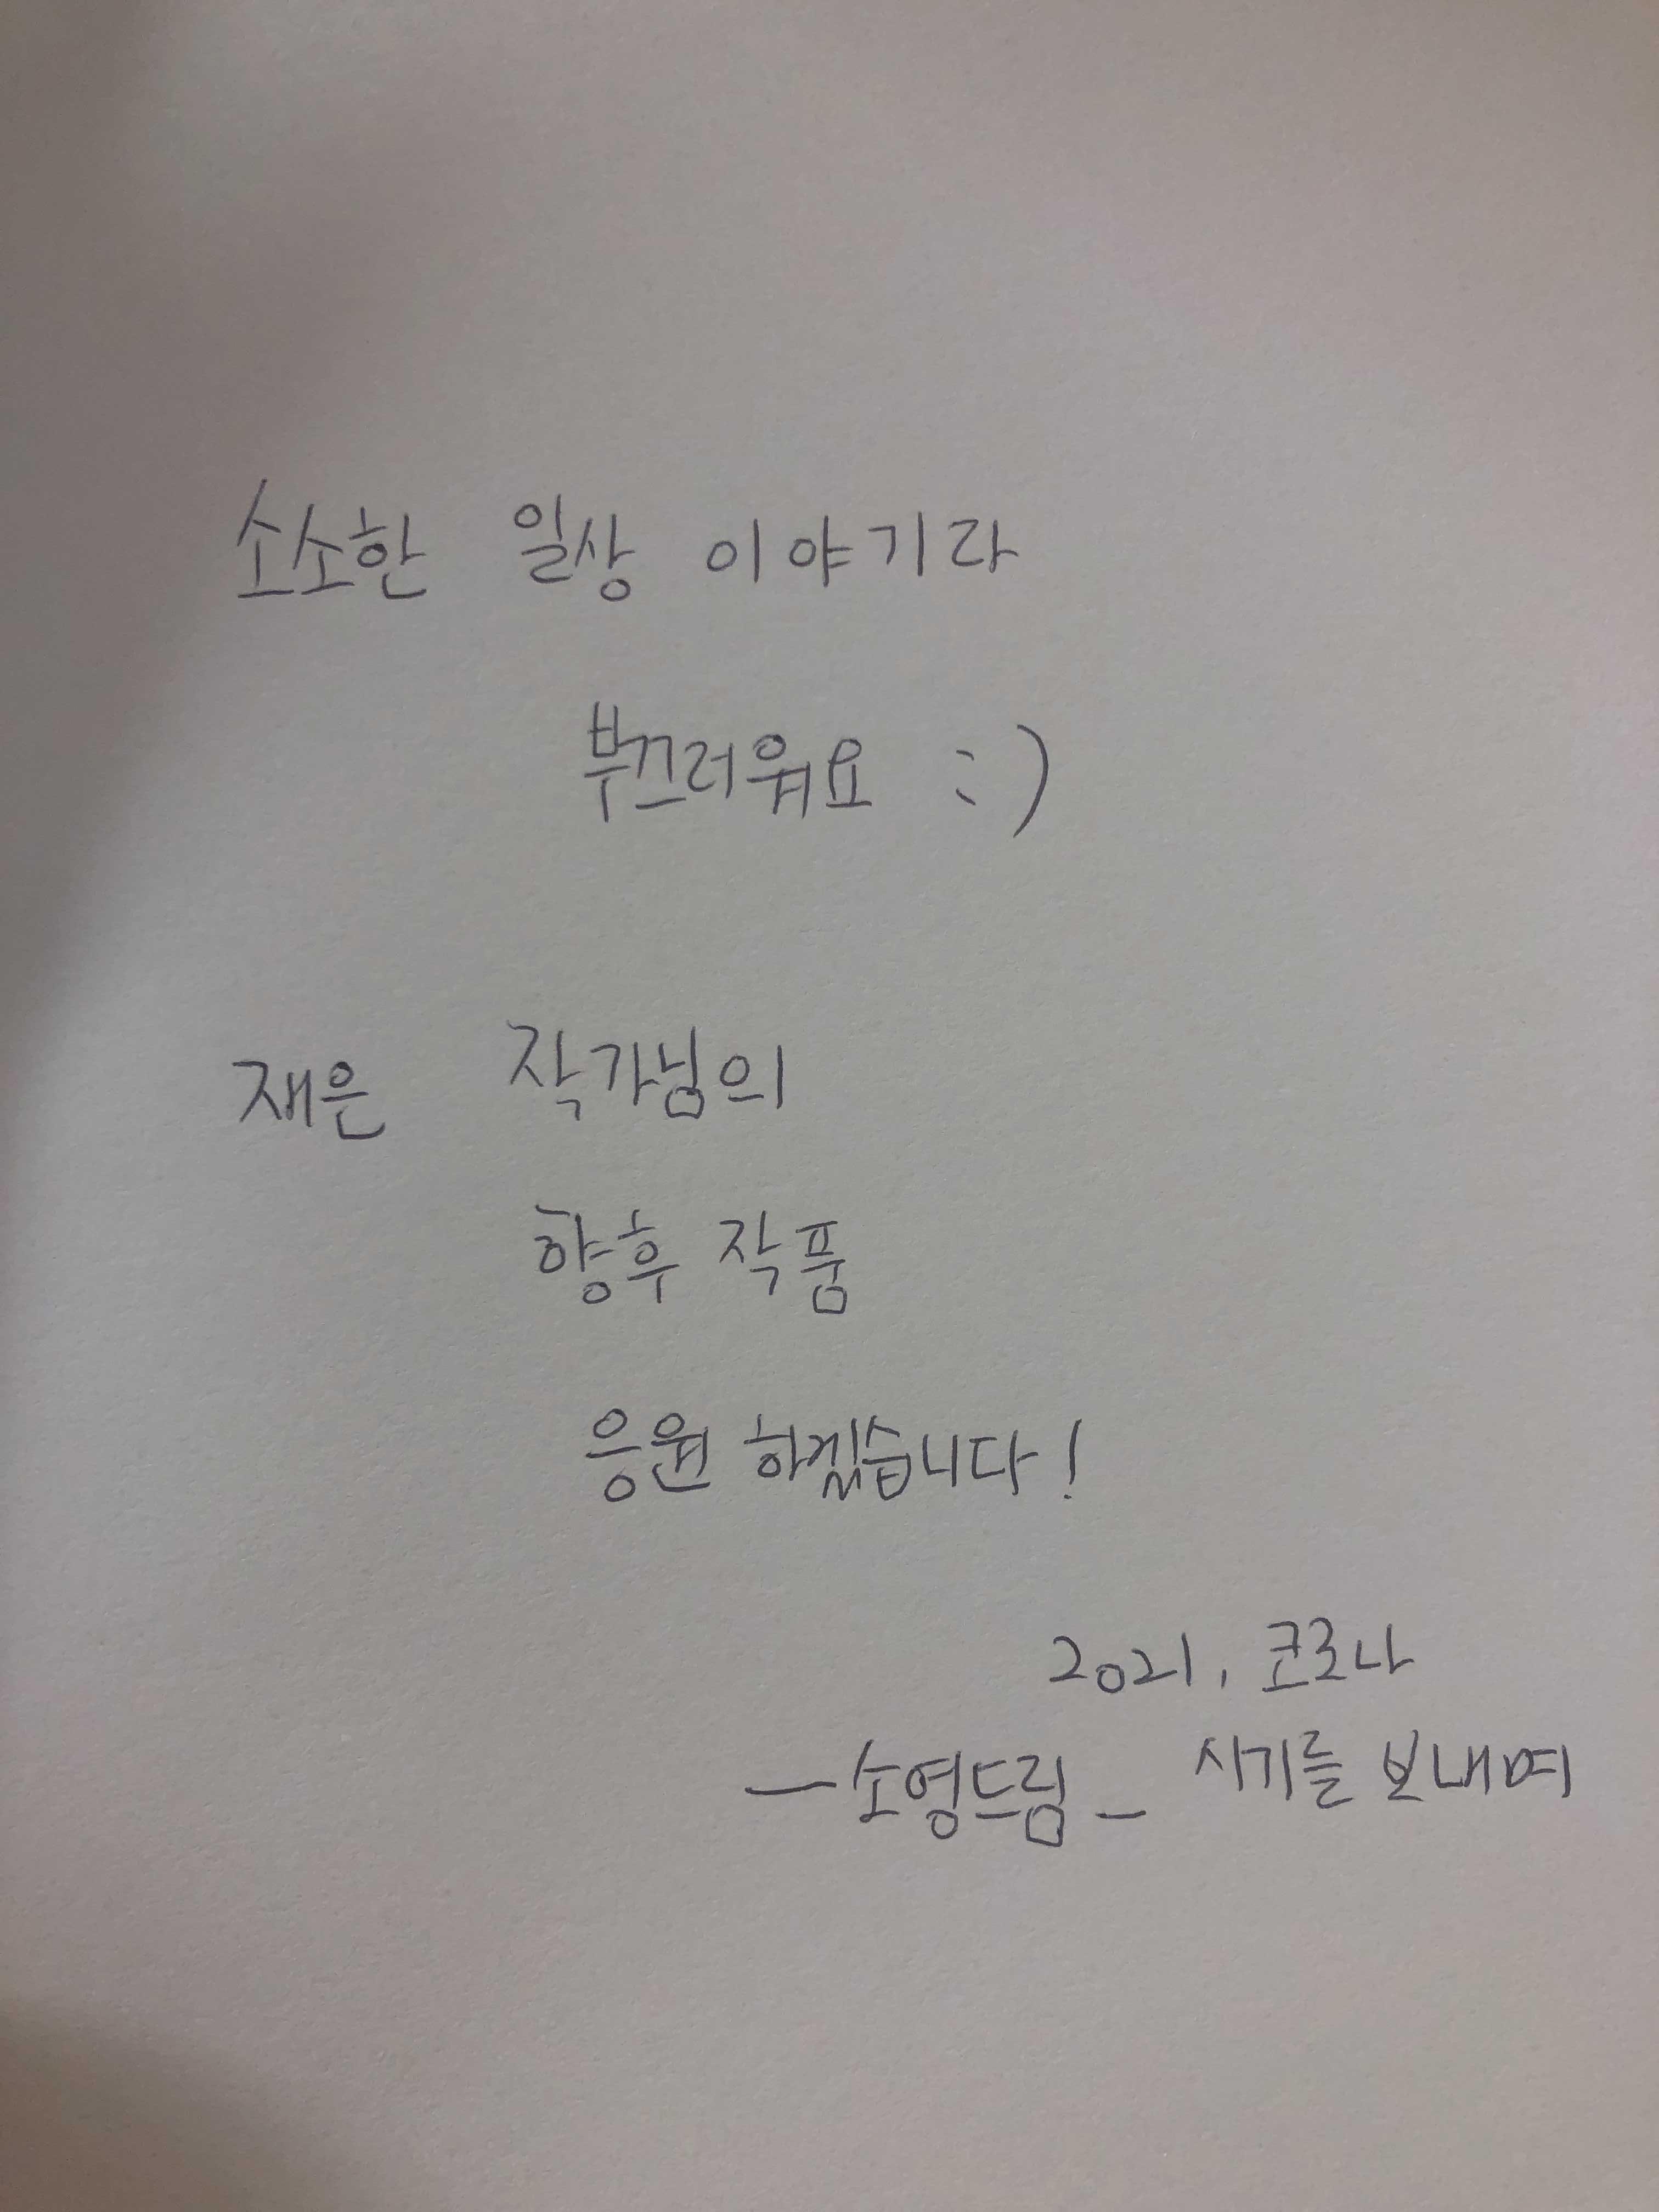 소소한 일상 이야기라
부끄러워요 :)
재은 작가님의
향후 작품
응원 하겠습니다!
2021, 코로나
시기를 보내며
—소영드림—